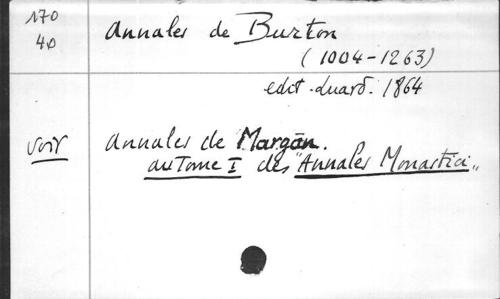 170
40
Annales de Burton
(1004-1263)
edit. Luard. 1864
voir
Annales de Margan.
au Tome I des "Annales Monastici"